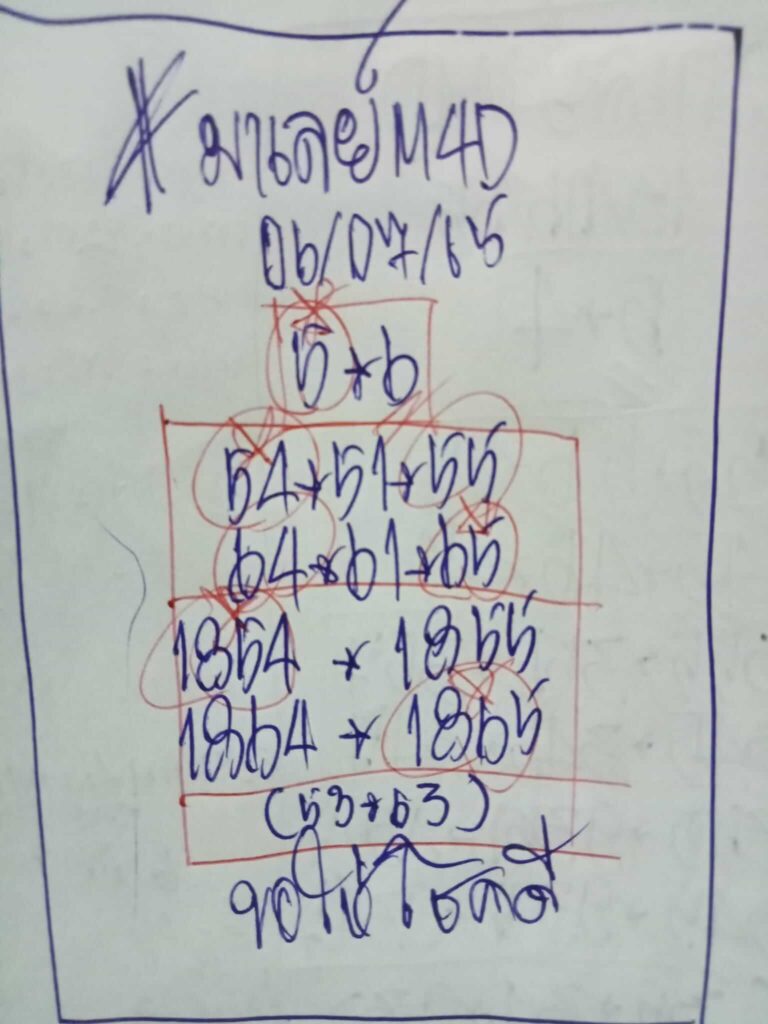 มาเลย์ M4D
06/07/65
5*6
54*51*55
64*61*65
1854 * 1855
1864 * 1865
(53*63)
ขอให้โชคดี